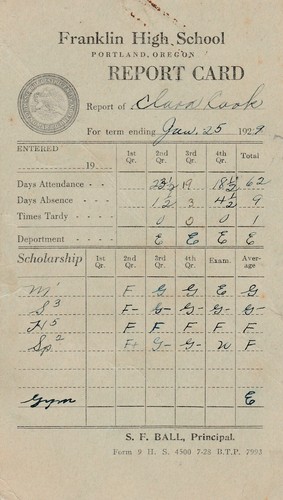 Franklin High School
PORTLAND, OREGON
REPORT CARD
Report of Clara Cook
For term ending Jan. 25 1929
ENTERED 1st Qr. 2nd Qr. 3rd Qr. 4th Qr. Total
19
Days Attendance 23½ 19 18½ 62
Days Absence 1½ 3 4½ 9
Times Tardy 0 0 0 1
Department E E E E
Scholarship 1st Qr. 2nd Qr. 3rd Qr. 4th Qr. Exam. Average
M' F G G E G
S³ F- G- G- G- G-
H⁵ F F F F F
Sp.² F+ G- G- W F
Gym E
S. F. BALL, Principal.
Form 9 H. S. 4500 7-28 B.T.P. 7993